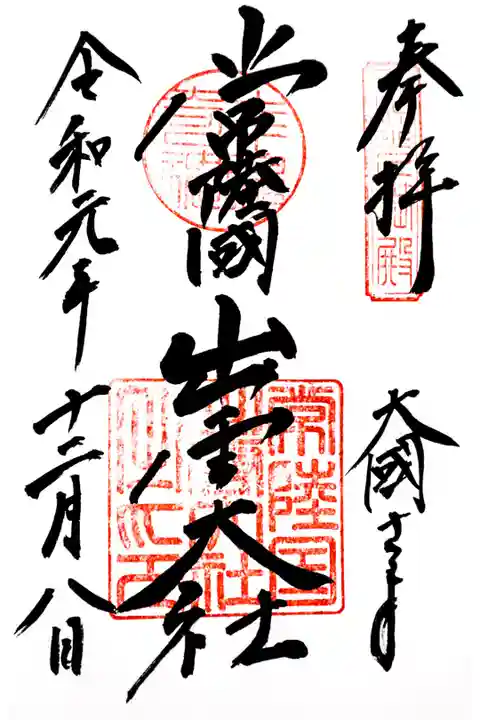 奉拝
大國さま
常陸國
出雲大社
令和元年
十二月八日
常陸国